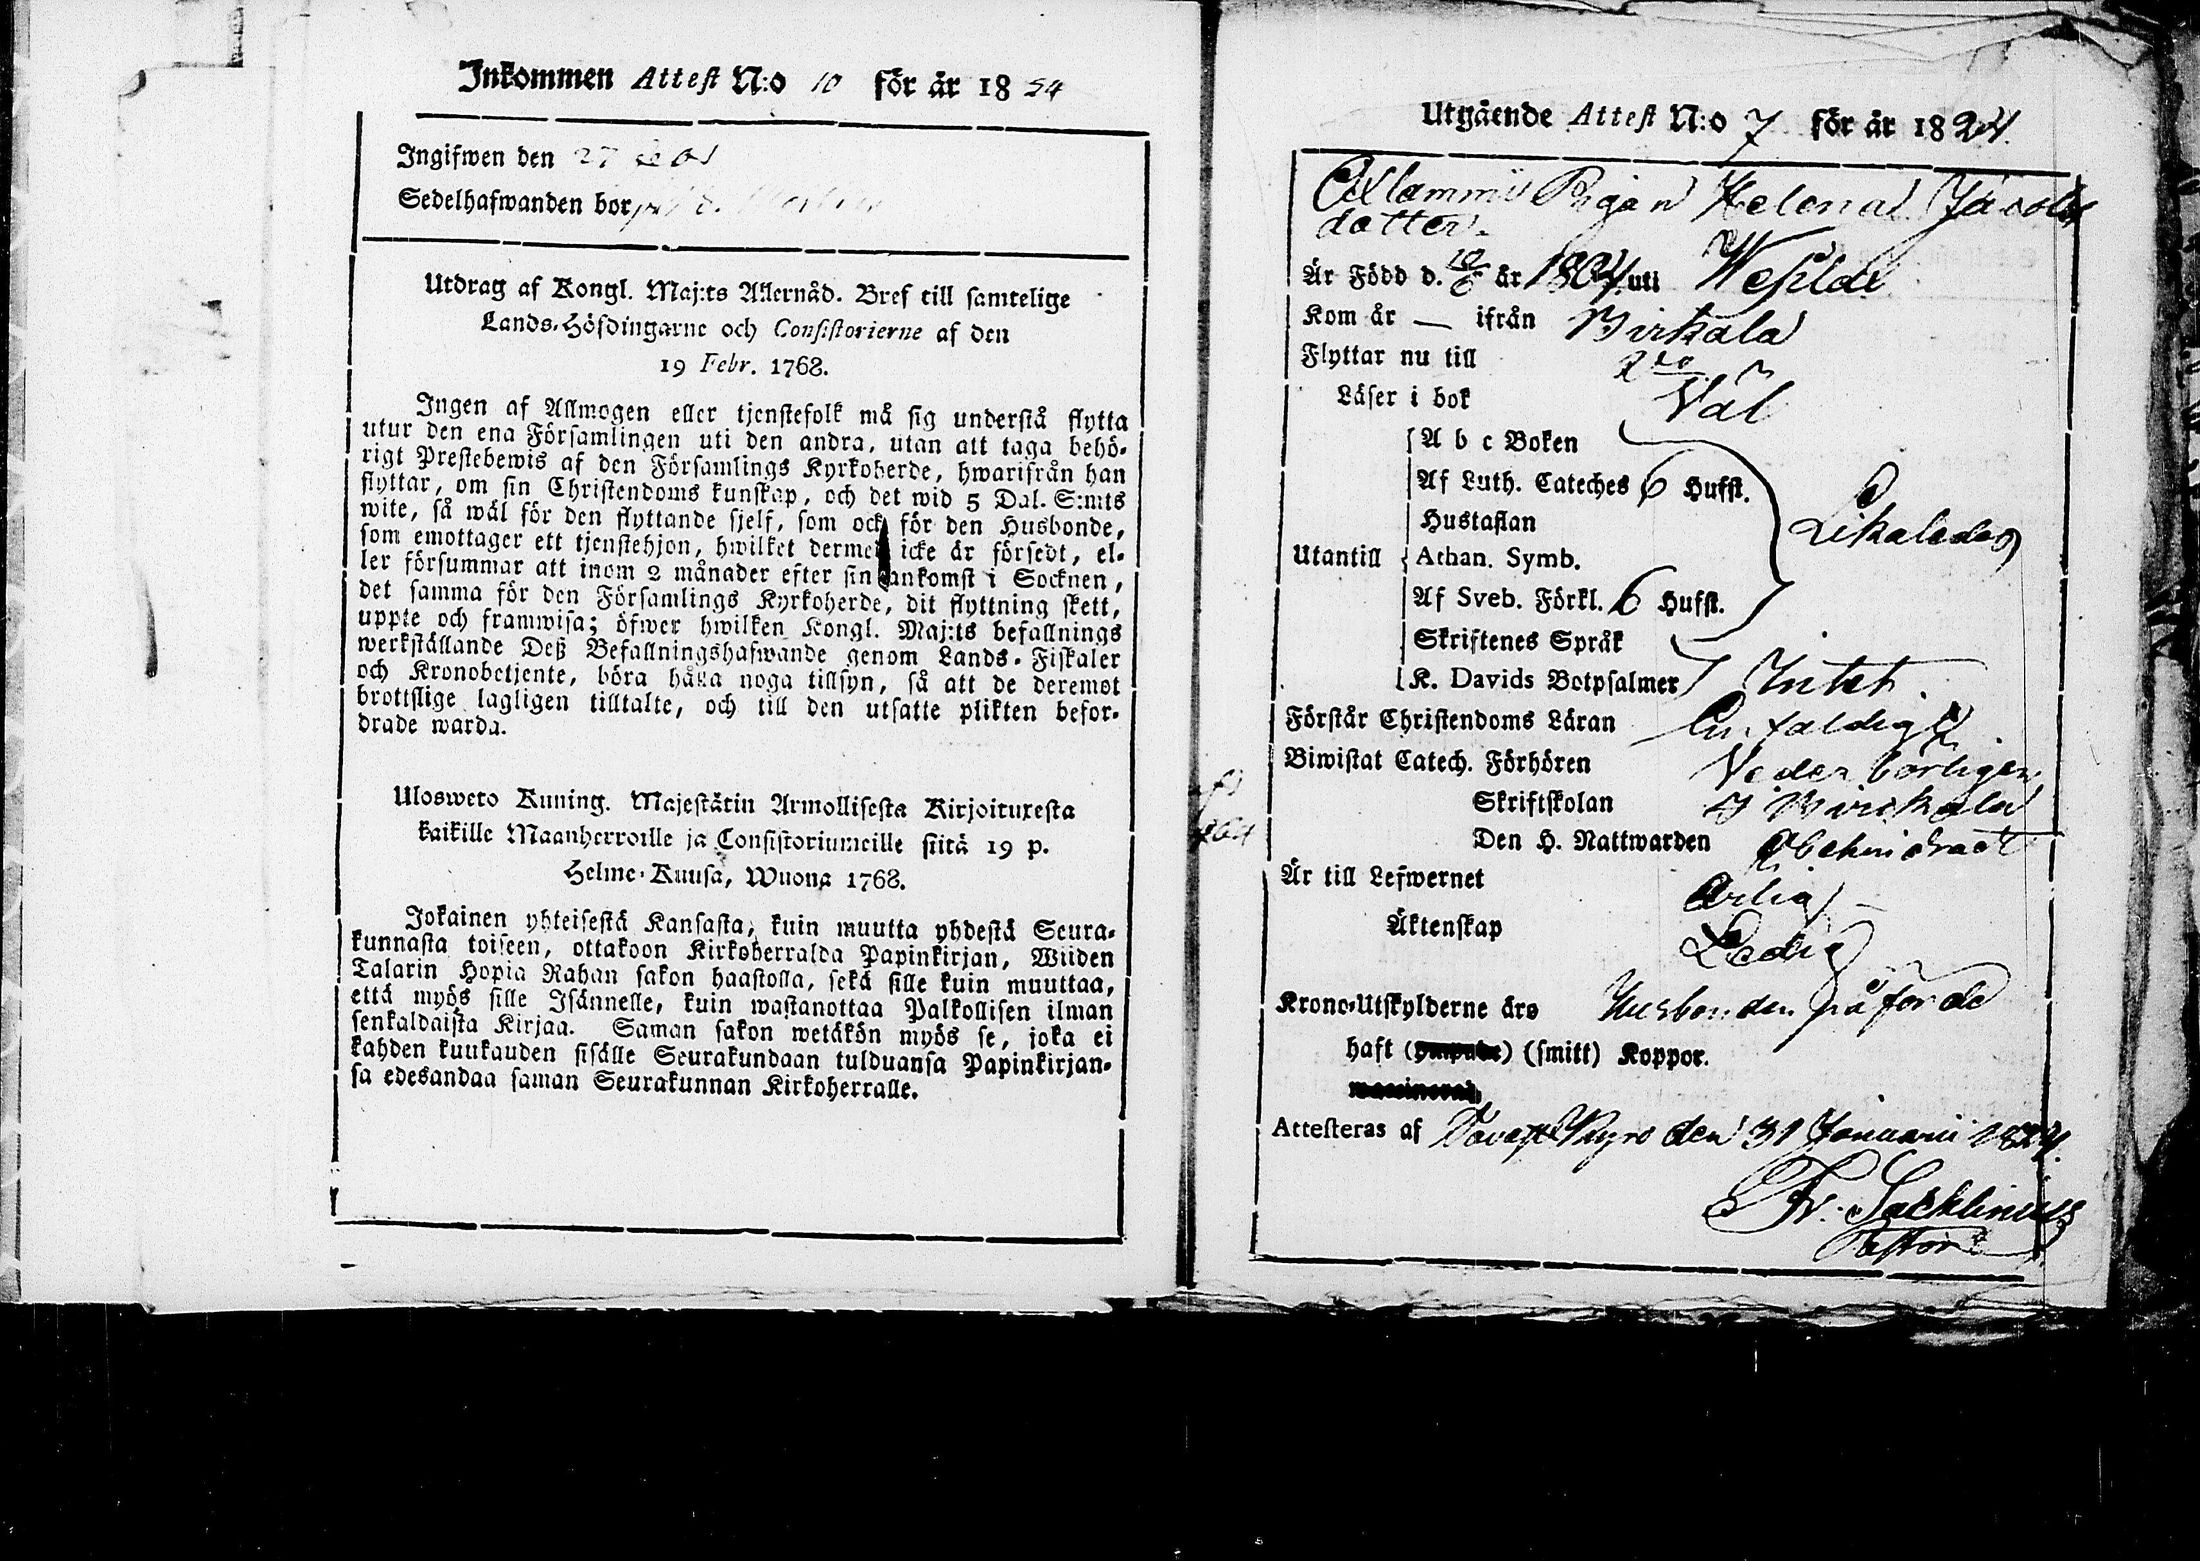 Inkommen Attest N:o 10 för år 1824
Ingifwen den 27
Sedelhafwanden bor
Utdrag af Kongl. Maj:ts Allernåd. Bref till samtelige
Lands-Höfdingarne och Consistorierne af den
19 Febr. 1768.
Ingen af Allmogen eller tjenstefolk må sig understå flytta
utur den ena Församlingen uti den andra, utan att taga behö-
rigt Prestebewis af den Församlings Kyrkoherde, hwarifrån han
flyttar, om sin Christendoms kunskap, och det wid 5 Dal. S:mts
wite, så wäl för den flyttande sjelf, som ock för den Husbonde,
som emottager ett tjenstehjon, hwilket dermed icke är försedt, el-
ler försummar att inom 2 månader efter sin ankomst i Socknen,
det samma för den Församlings Kyrkoherde, dit flyttning skett,
uppte och framwisa; öfwer hwilken Kongl. Maj:ts befallnings
werkställande Deß Befallningshafwande genom Lands-Fiskaler
och Kronobetjente, böra hålla noga tillsyn, så att de deremot
brottslige lagligen tilltalte, och till den utsatte plikten befor-
drade warda.
Uloswero Kuning. Majestätin Armollisesta Kirjoituxesta
kaikille Maanherroille ja Consistoriumeille siitä 19 p.
Helme-Kuusa, Wuona 1768.
Jokainen yhteisestä Kansasta, kuin muutta yhdestä Seura-
kunnasta toiseen, ottakoon Kirkoherralda Papinkirjan, Wiiden
Talarin Hopia Rahan sakon haastolla, sekä sille kuin muuttaa,
että myös sille Isännelle, kuin wastanottaa Palkollisen ilman
senkaldaista Kirjaa. Saman sakon wetäkön myös se, joka ei
kahden kuukauden sisälle Seurakundaan tulduansa Papinkirjan-
sa edesandaa saman Seurakunnan Kirkoherralle.
Utgående Attest N:o 7 för år 1824.
Pigan Helena Jacobs
dotter
Är Född d. 10/6 år 1804 uti Wesilax
Kom år — ifrån Birkala
Flyttar nu till
Läser i bok Väl
A b c Boken
Af Luth. Cateches 6 Hufst.
Hustaflan Likaledes
Utantill Athan. Symb.
Af Sveb. Förkl. 6 Hufst.
Skriftenes Språk
K. Davids Botpsalmer Intet
Förstår Christendoms Läran Enfaldigt
Biwistat Catech. Förhören Vederbörligen
Skriftskolan I Birckala
Den H. Nattwarden Obehindradt
Är till Lefwernet Ärlig
Äktenskap Ledig
Krono-Utskylderne äro Husbonden påförde
haft (smitt) Koppor.
Attesteras af Tavast Kyro den 31 Januarii 1824.
Fr. Sacklinius
Pastor